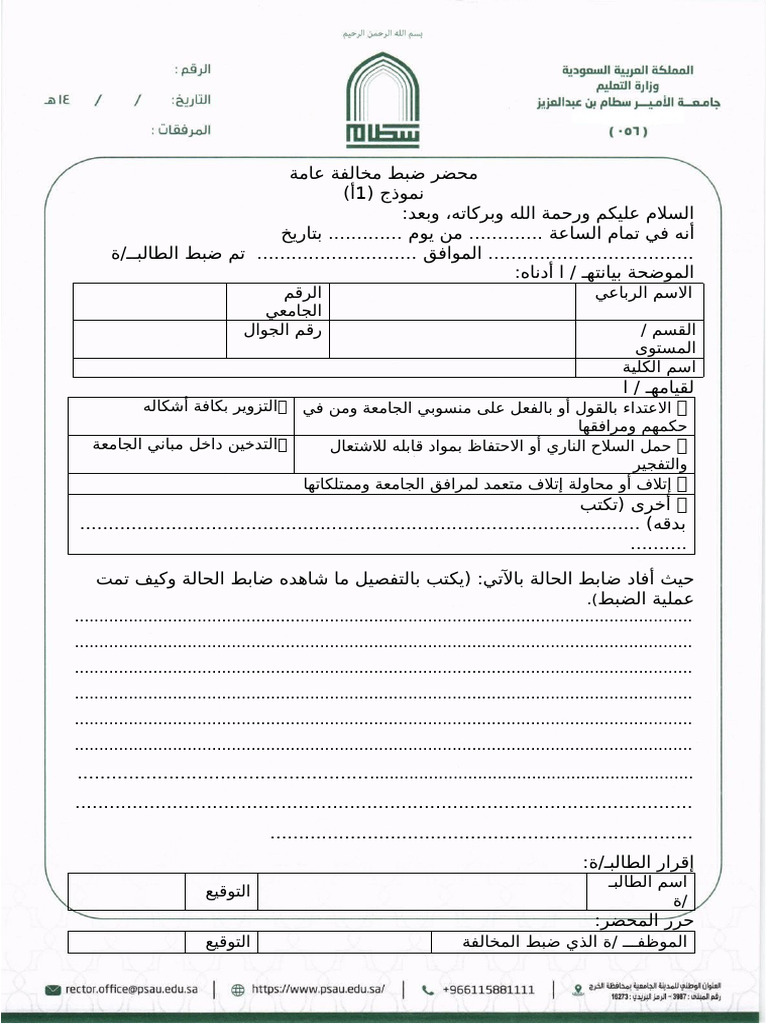 بسم الله الرحمن الرحيم
المملكة العربية السعودية
وزارة التعليم
جامعـــة الأميـــر سطام بن عبدالعزيز
(٠٥٦)
سطام
الرقم :
التاريخ: / / ١٤هـ
المرفقات :
محضر ضبط مخالفة عامة
نموذج (1أ)
السلام عليكم ورحمة الله وبركاته، وبعد:
أنه في تمام الساعة ............. من يوم ............. بتاريخ
................................... الموافق ............................ تم ضبط الطالبــ/ة
الموضحة بيانتهـ / ا أدناه:
الاسم الرباعي
الرقم
الجامعي
القسم /
المستوى
رقم الجوال
اسم الكلية
لقيامهـ / ا
▯ الاعتداء بالقول أو بالفعل على منسوبي الجامعة ومن في
حكمهم ومرافقها
▯التزوير بكافة أشكاله
▯ حمل السلاح الناري أو الاحتفاظ بمواد قابله للاشتعال
والتفجير
▯التدخين داخل مباني الجامعة
▯ إتلاف أو محاولة إتلاف متعمد لمرافق الجامعة وممتلكاتها
▯ أخرى (تكتب
بدقه) .................................................................................................
..........
حيث أفاد ضابط الحالة بالآتي: (يكتب بالتفصيل ما شاهده ضابط الحالة وكيف تمت
عملية الضبط).
إقرار الطالبـ/ة:
اسم الطالبـ
/ة
التوقيع
حرر المحضر:
الموظفـــ /ة الذي ضبط المخالفة
التوقيع
العنوان الوطني للمدينة الجامعية بمحافظة الخرج
رقم المبنى : 3987 - الرمز البريدي : 16273
+966115881111
https://www.psau.edu.sa/
rector.office@psau.edu.sa